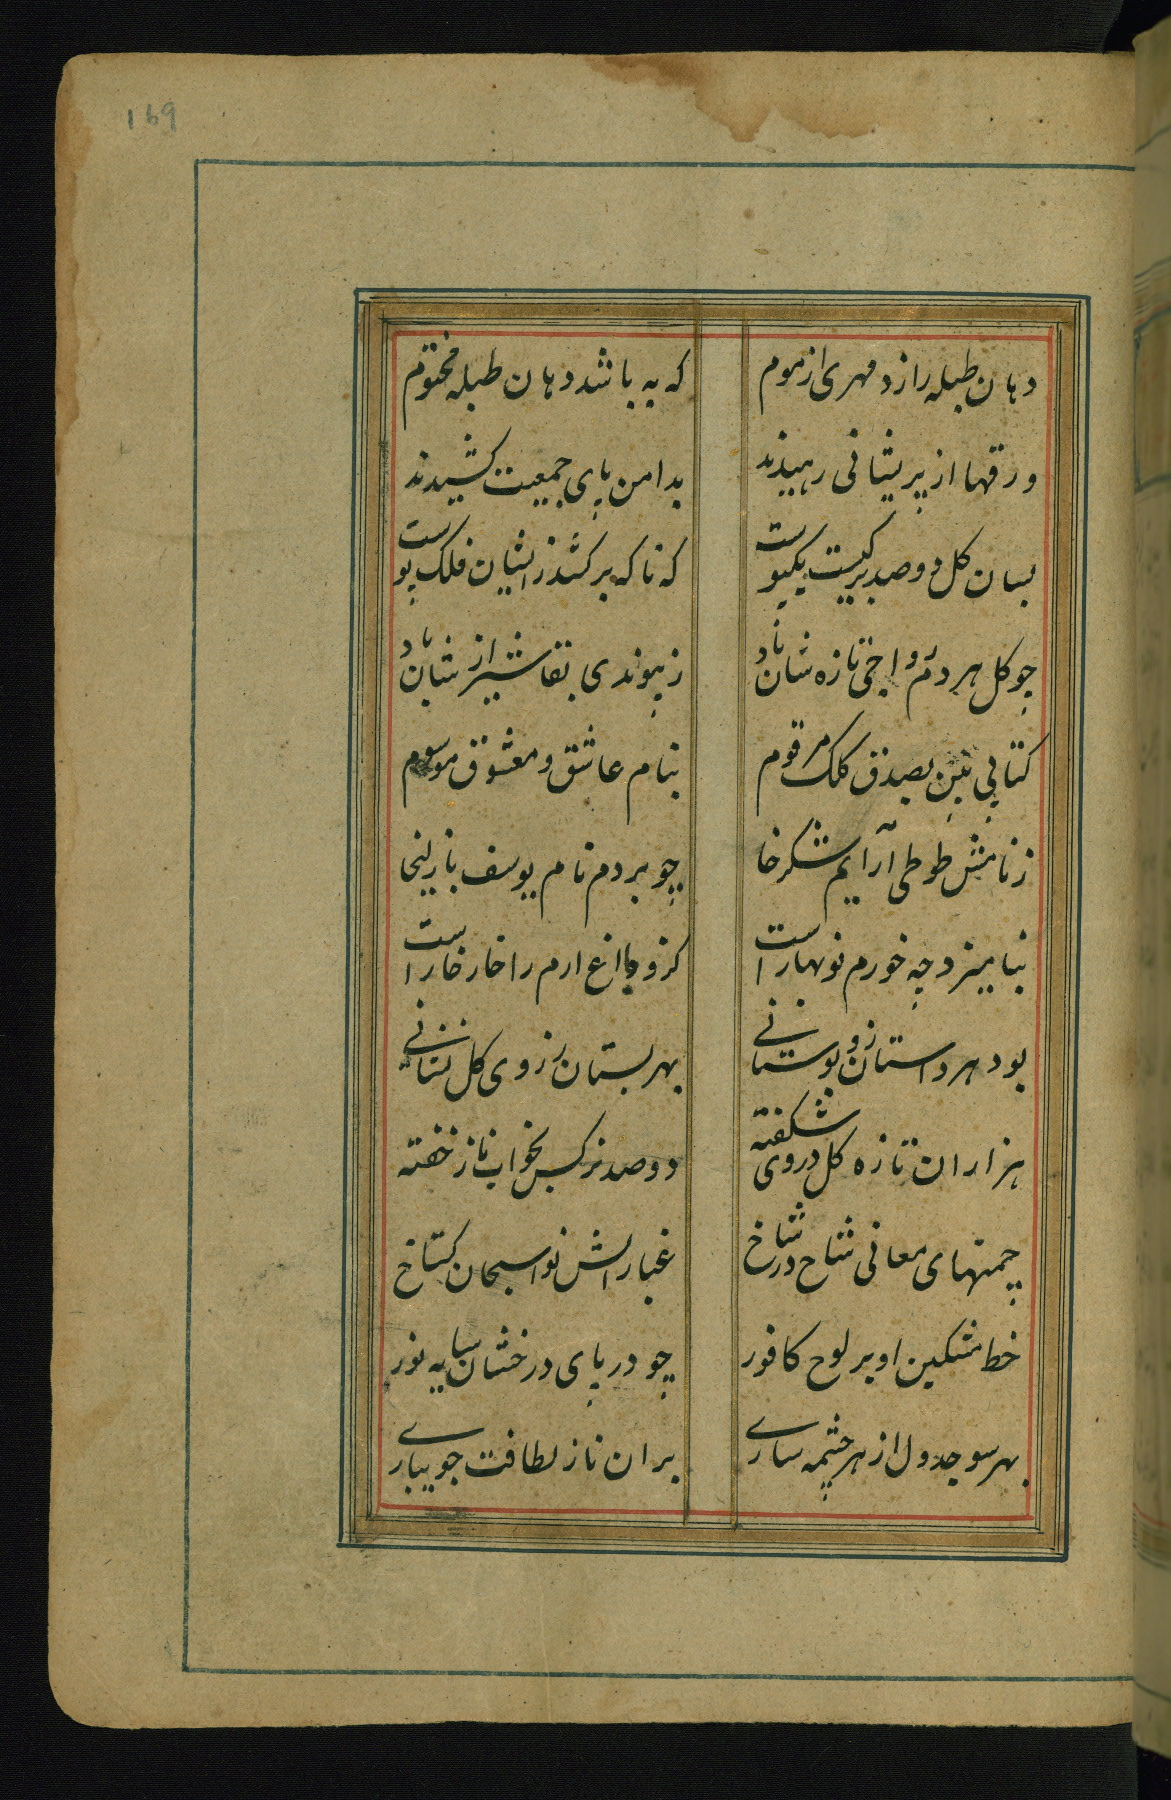 169
دهان طبله را زد مهری از موم که به باشد دهان طبله مختوم
ورقها از پریشانی رهیدند بدامن پای جمعیت کشیدند
بسان کل دوصد برکیست یکپوست که ناکه برکشد زایشان فلک پوست
چو کل هر دم رواجی تازه شان باد ز پیوند بقا شیرازه شان باد
کتابی بین بصدق کلک مرقوم بنام عاشق و معشوق موسوم
ز نامش طوطی آرایم شکرخا چو بردم نام یوسف با زلیخا
بنامیزد چه خورم نوبهار است کزو باغ ارم را خار خار است
بود هر داستان زو بوستانی بهر بستان ز روی کل نشانی
هزاران تازه کل در وی شکفته دوصد نرکس بخواب ناز خفته
چمنهای معانی شاخ در شاخ نواسبحان کستاخ
خط مشکین او بر لوح کافور چو در پای درختان سایه نور
بهر سو جدول از هر چشمه ساری بران ناز لطافت جویباری